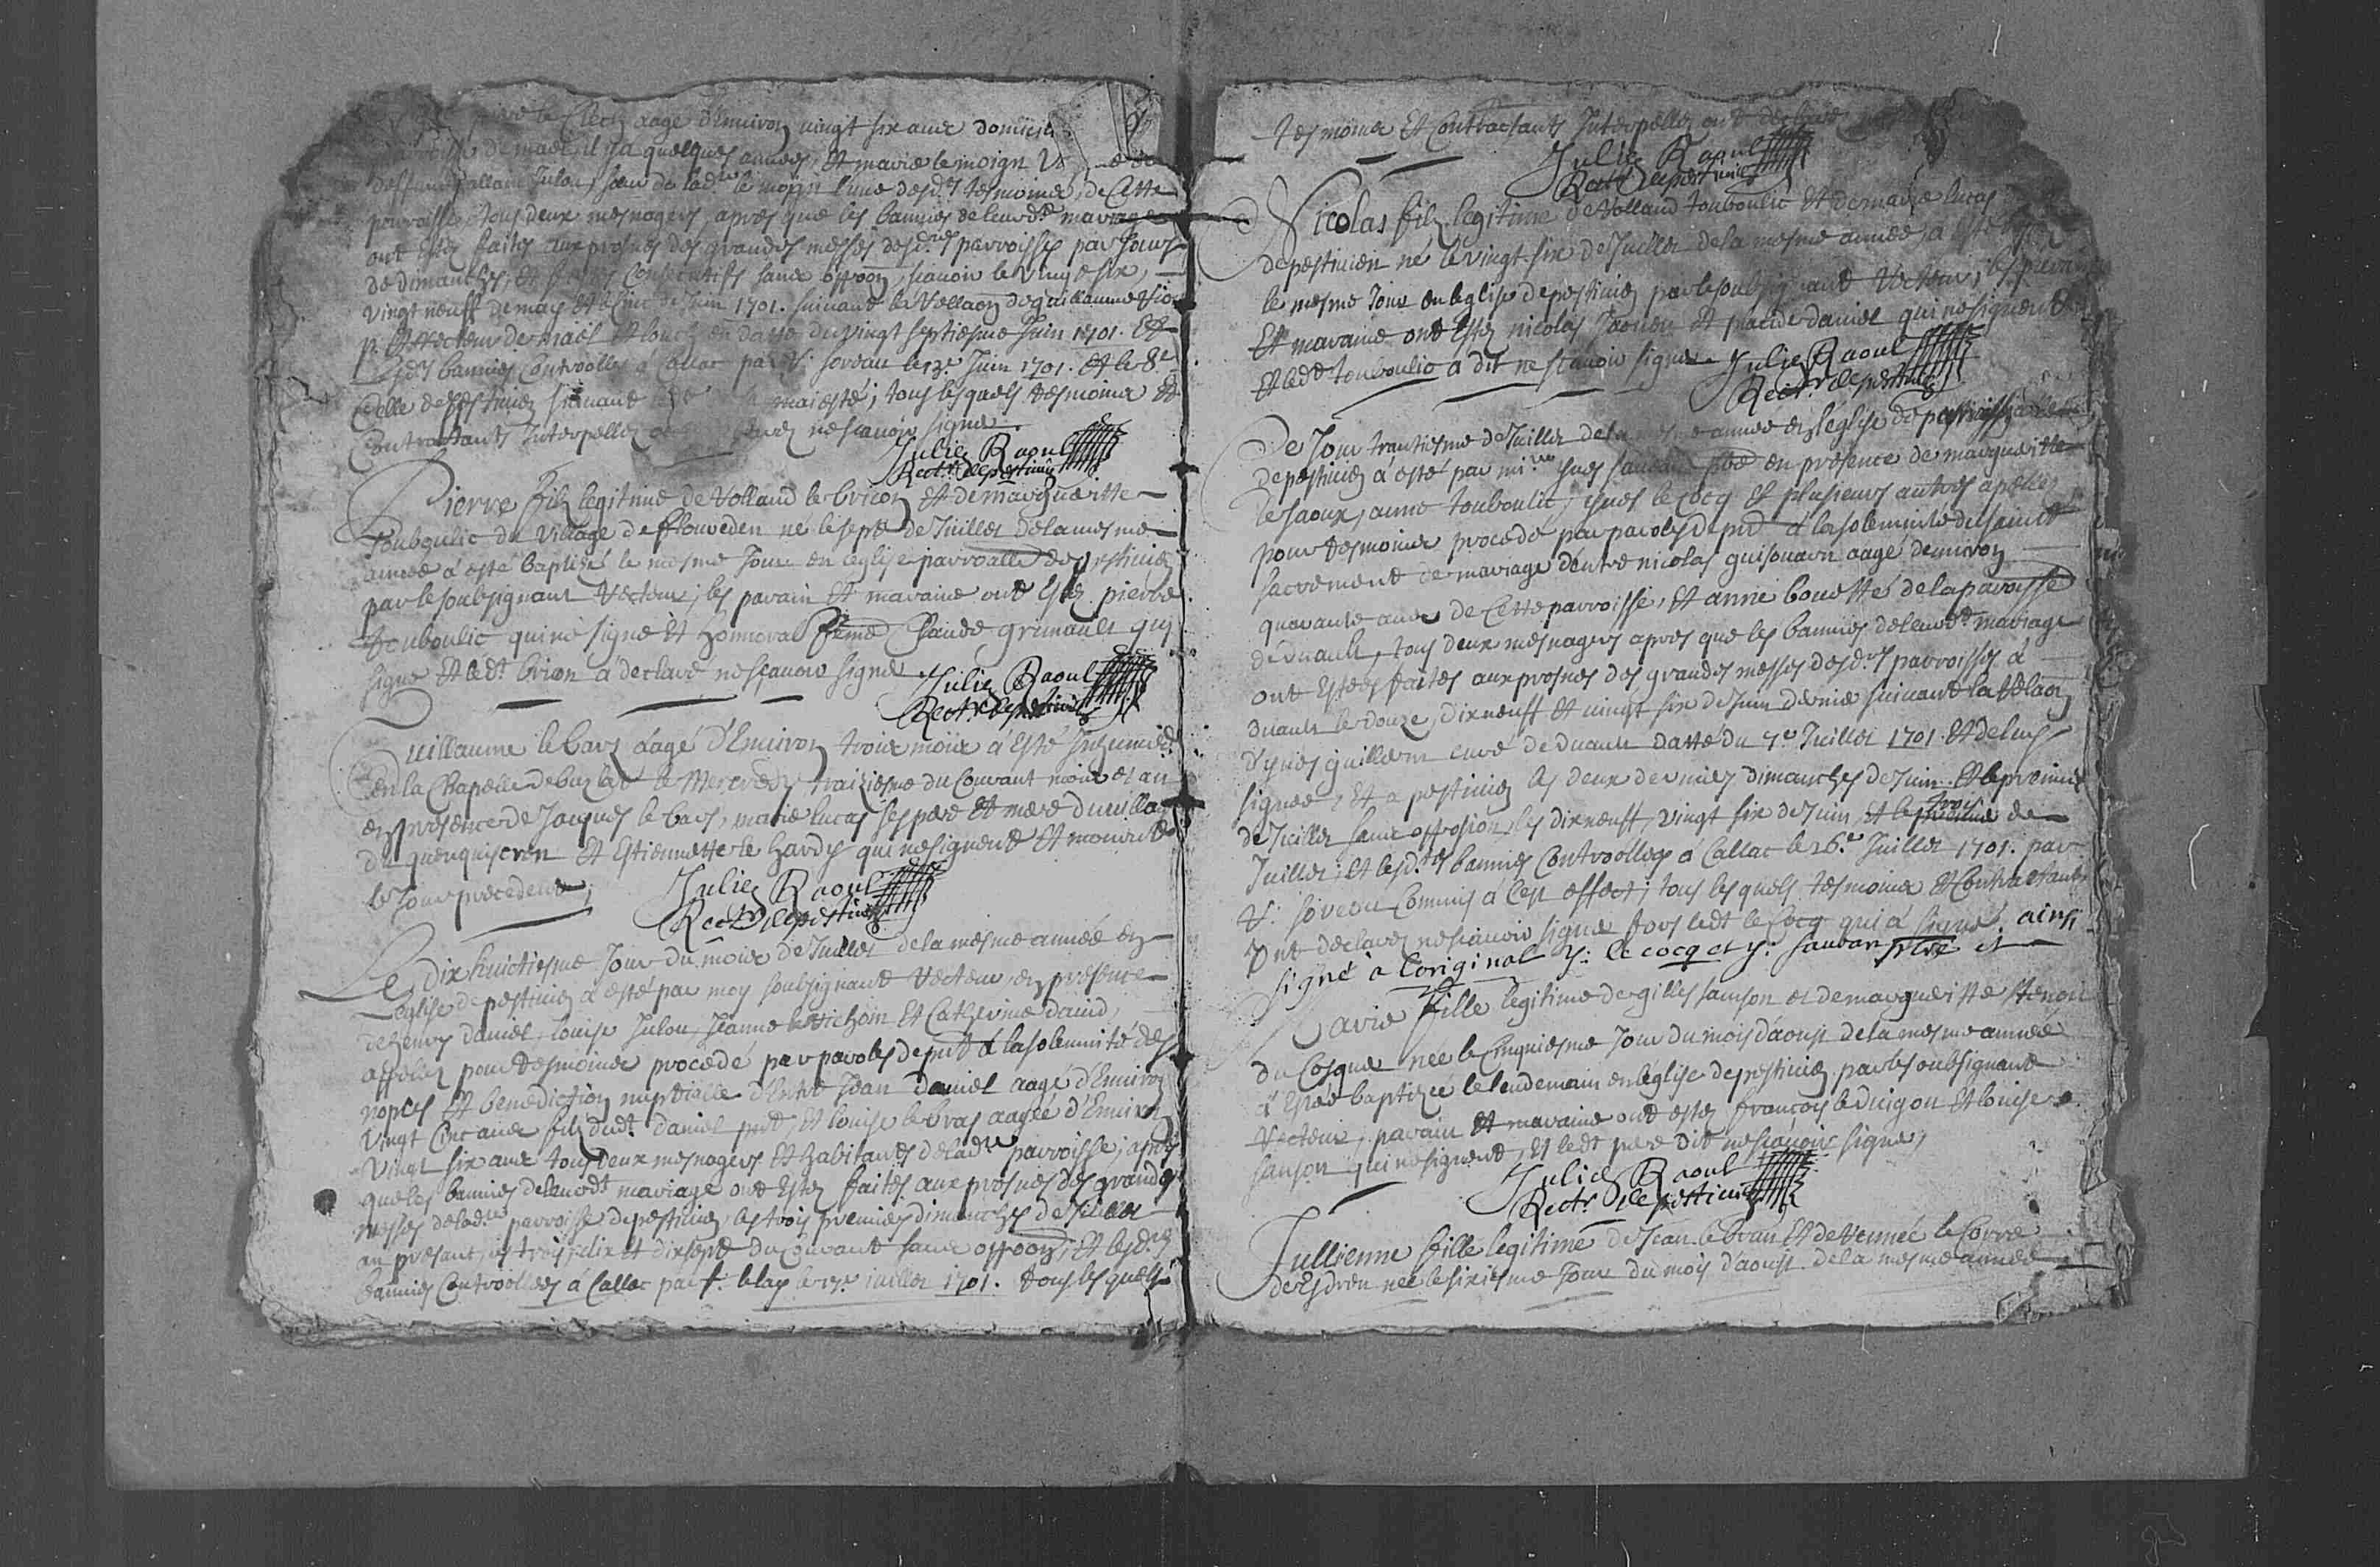 le Clech aagé d'Enuiron vingt six ans domicil
de mael il y a quelques années, Et marie le moign
deffunct allain Julou, soeur de lad.te le moign l'une desd.ts tesmoins, de Cette
parroisse, tous deux mesnagers, apres que les bannies de leurd.t mariage
ont esté faites aux prosnes des grandes messes desd.tes parroisses par Jours
de dimanches, et festes Consecutifs sans oppoon, scauoir le vingt six,
vingt neuff de may et Cinc de Juin 1701. suiuant la Rellaon de guillaume
p. Recteur de mael Et louch en datte du vingt septiesme Juin 1701. Et
lesd.ts bannies Controolles a Callac par V. soveau le Juin 1701. Et le 8.e
Celle de pestiuien suiuant maiesté; tous lesquels tesmoins Et
Contractants Interpellez ne scauoir signer.
Julien Raoul
Rect.r de pestiuien
Pierre fils legitime de Rolland le bricon Et de margueritte
Touboulic du village de flouveden né le sept de Juillet de la mesme
année a esté baptizé le mesme Jour en l'eglise parroalle de pestiuien
par le soubsignant Recteur; les parain Et maraine ont esté pierre
Touboulic qui ne signe Et honnorable feme Claude grimault qui
signe Et led.t bricon a declaré ne scauoir signer
Julien Raoul
Rect.r de pestiuien
Guillaume le bars aagé d'Enuiron trois mois a Esté Inhumé
En la Chapelle de burlat le Mercredy traiziesme du Courant mois et an
En presence de Jacques le bars, marie lucas ses pere Et mere du village
du quenquiseven Et Estiennette le hardy qui ne signent Et mourut
le Jour precedent;
Julien Raoul
Rect.r de pestiuien
Le dix huictiesme Jour du mois de Juillet de la mesme année En
l'eglise de pestiuien a esté par moy soubsignant Recteur, En presence
de henry daniel, louise Julou, Jeanne le vichom Et Catherine dauid,
appellez pour tesmoins procedé par paroles de pnt a la solemnité des
nopces Et benediction nuptialle d'Entre Jean daniel aagé d'Enuiron
vingt Cinc ans fils dud.t daniel pnt, Et louise le bras aagée d'Enuiron
vingt six ans tous deux mesnagers Et habitants de lad.te parroisse; apres
que les bannies de leurd.t mariage ont Esté faites aux prosnes des grandes
messes de lad.te parroisse de pestiuien les trois premiers dimanches de Juillet
an presant, les trois, dix Et dixsept du Courant sans oppoon; Et lesd.tes
bannies Controollees a Callac par f. le lay le 17.e Juillet 1701. tous lesquels
Tesmoins Et Contractants Interpellez ont declaré
Julien Raoul
Rect.r de pestiuien
Nicolas fils legitime de Rolland touboulic Et de marie lucas
de pestiuien né le vingt six de Juillet de la mesme année, a esté
le mesme Jour en l'eglise de pestiuien par le soubsignant Recteur, les parain
Et maraine ont Esté nicolas Jaouen Et placide daniel qui ne signent
Et led.t touboulic a dit ne scauoir signer. Julien Raoul
Rect.r de pestiuien
De Jour trantiesme de Juillet de la mesme année en l'eglise de parroissialle
de pestiuien a esté par mi.re yues sauvan ptre en presence de marguerite
le saoux, anne touboulic, yues le Cocq Et plusieurs autres apelles
pour tesmoins procedé par paroles de pnt a la solemnité du sainct
sacrement de mariage d'entre nicolas guisouarn aagé d'enuiron
quarante ans de Cette parroisse, Et anne bouetté de la paroisse
de duault, tous deux mesnagers apres que les bannies de leurd.t mariage
ont Esté faites aux prosnes des grandes messes desd.tes parroisses a
duault le douze, dixneuff Et vingt six de Juin dernier suiuant la Relaon
d'yues guillerm curé de duault datté du 7.e Juillet 1701. Et de luy
signée; Et a pestiuien les deux derniers dimanches de Juin Et le premier
de Juillet sans opposion, les dixneuff, vingt six de Juin Et le trois de
Juillet; Et lesd.tes bannies Controollees a Callac le 26.e Juillet 1701. par
V. soveau Commis a Cest effect; tous lesquels tesmoins Et Contractants
Ont declaré ne scauoir signer fors led.t le Cocq qui a signé. ainsi
signé a l'original Y: le cocq et y: sauvan ptre
Marie fille legitime de gilles samson et de marguerite
du Cosquer née le Cinquiesme Jour du mois d'aoust de la mesme année
a Esté baptizée le lendemain en l'eglise de pestiuien par le soubsignant
Recteur, parain Et maraine ont esté francois le duigou Et louise
samson qui ne signent, Et led.t pere dit ne scauoir signer,
Julien Raoul
Rect.r de pestiuien
Jullienne fille legitime de Jean le bvan Et de Rennée le Corre
de née le sixiesme Jour du mois d'aoust de la mesme année